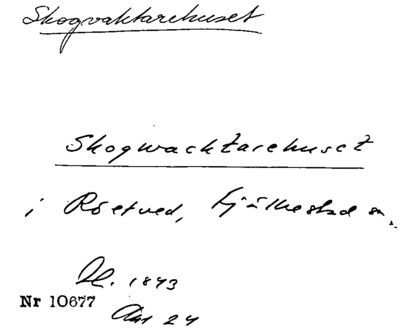 Skogvaktarehuset
Skogwacktarehuset
i Röetved, Fjälkestad sn.
Bl. 1893
Nr 10677
Aas 24